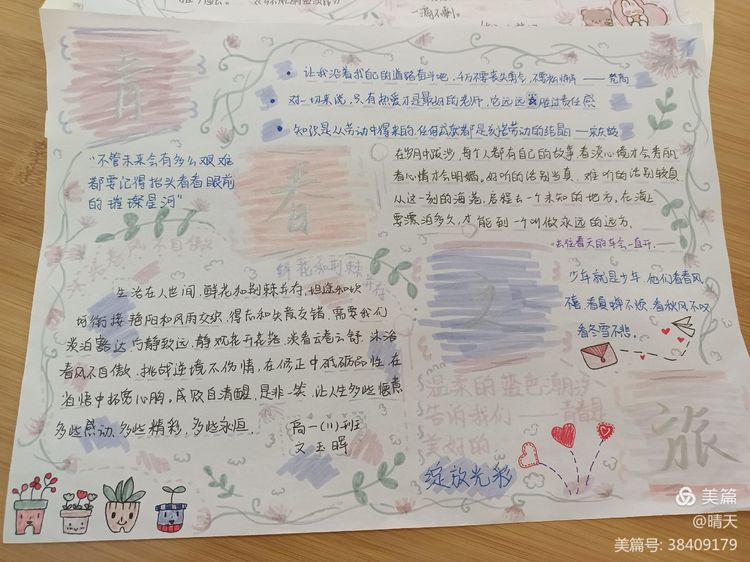 青
春
之
旅
• 让我沿着我自己的道路奋斗吧,千万不要丧失勇气,不要松懈 —— 梵高
• 对一切来说,只有热爱才是最好的老师,它远远胜过责任感
• 知识是从劳动中得来的,任何成就都是刻苦劳动的结晶 —— 宋庆龄
“不管未来会有多么艰难
都要记得抬头看看眼前
的璀璨星河”
在岁月中跋涉,每个人都有自己的故事,看淡心境才会秀丽
看心情才会明媚。好听的话别当真,难听的话别较真
从这一刻的海岸,启程去一个未知的地方。在海上
要漂泊多久,才能到一个叫做永远的远方。
去往春天的车会一直开.
沐浴春风不自傲
鲜花和荆棘并存
生活在人世间,鲜花和荆棘并存,坦途和坎
坷衔接,艳阳和风雨交织,得志和失意交错,需要我们
淡泊豁达,宁静致远,静观花开花落,淡看云卷云舒,沐浴
春风不自傲,挑战逆境不伤情,在修正中砥砺品性,在
省悟中拓宽心胸。成败自清醒,是非一笑,让人生多些惬意
多些感动,多些精彩,多些永恒.
高一(11)班
文玉晖
少年就是少年,他们看春风不
喜,看夏蝉不烦,看秋风不叹
看冬雪不悲.
温柔的蓝色潮汐
告诉我们——青春是
美好的
绽放光彩
美篇
@晴天
美篇号: 38409179